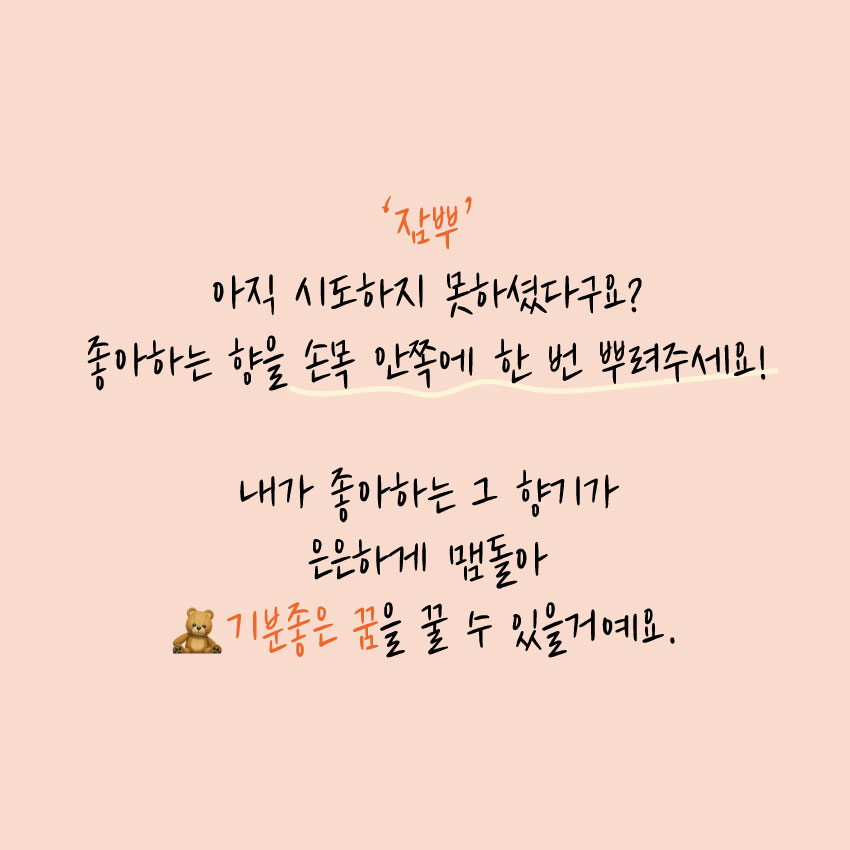 ‘잠뿌’
아직 시도하지 못하셨다구요?
좋아하는 향을 손목 안쪽에 한 번 뿌려주세요!
내가 좋아하는 그 향기가
은은하게 맴돌아
기분좋은 꿈을 꿀 수 있을거예요.